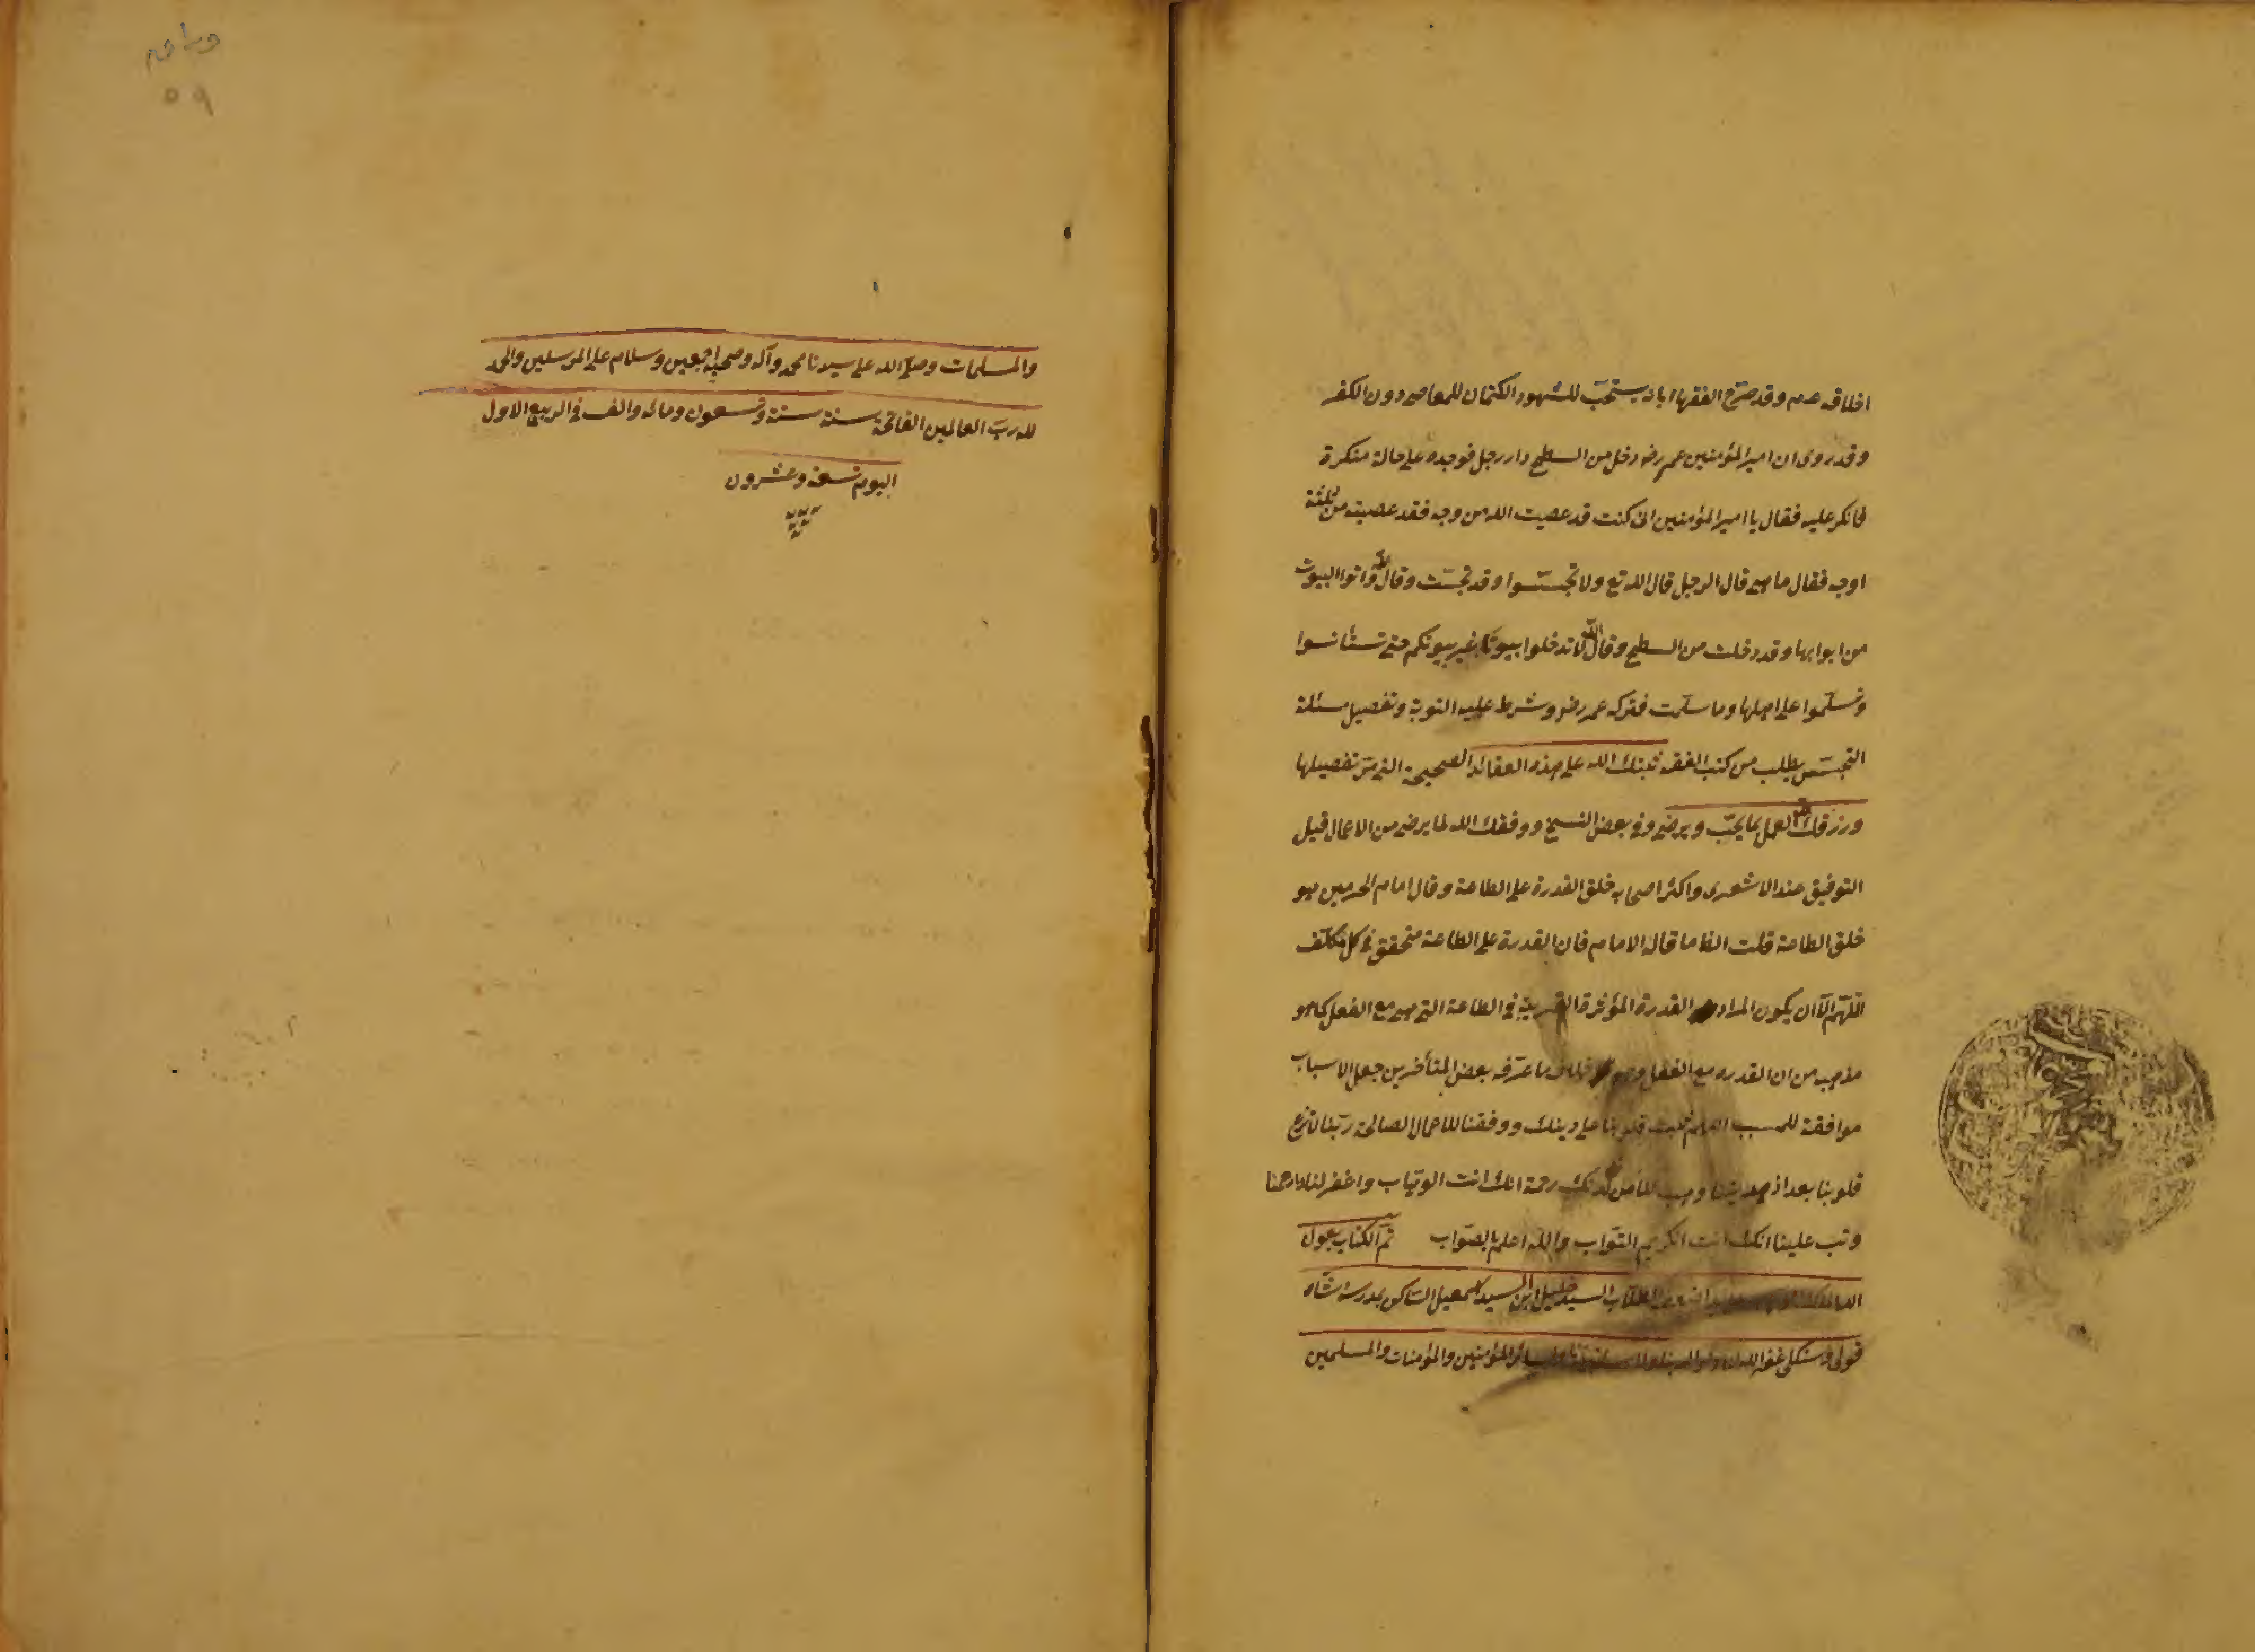 اخلاقه عدم وقد صرّح الفقهاء بانه يستحبّ للشهود الكتمان للمعاصى دون الكفر
وقد روى ان امير المؤمنين عمر رضه دخل من السطح دار رجل فوجده على حالة منكرة
فانكر عليه فقال يا امير المؤمنين ان كنت قد عصيت الله من وجه فقد عصيته من ثلثة
اوجه فقال ما هى قال الرجل قال الله تع ولا تجسّسوا وقد تجسّست وقال الله وائتوا البيوت
من ابوابها وقد دخلت من السطح وقال الله لا تدخلوا بيوتا غير بيوتكم حتى تستأنسوا
وتسلّموا على اهلها وما سلّمت فتركه عمر رضه وشرط عليه التوبة وتفصيل مسئلة
التجسّس يطلب من كتب الفقه ثبتك الله على هذه العقائد الصحيحة التى مرّ تفصيلها
ورزقك الله العمل بما يحبّ ويرضى وفى بعض النسخ ووفقك الله لما يرضى من الاعمال قيل
التوفيق عند الاشعرى واكثر اصحابه خلق القدرة على الطاعة وقال امام الحرمين هو
خلق الطاعة قلت الظ ما قاله الامام فان القدرة على الطاعة متحقق فى كل مكلّف
اللّهمّ الّا ان يكون المراد القدرة المؤثرة القريبة فى الطاعة التى هى مع الفعل كما هو
مذهبه من ان القدرة مع الفعل خلاف ما عرّفه بعض المتأخرين جعل الاسباب
موافقة للمسبب اللهم ثبت قلوبنا على دينك ووفقنا للاعمال الصالحة ربّنا لا تزغ
قلوبنا بعد اذ هديتنا وهب لنا من لدنك رحمة انك انت الوهّاب واغفر لنا وارحمنا
وتب علينا انك انت الكريم التوّاب والله اعلم بالصّواب تمّ الكتاب بعون
الله الملك الطلّاب السيد خليل ابن السيد اسمعيل الساكن بمدرسة شاه
قولى غفر الله له ولوالديه المؤمنين والمؤمنات والمسلمين
والمسلمات وصلى الله على سيدنا محمد وآله وصحبه اجمعين وسلام على المرسلين والحمد
لله ربّ العالمين الفاتحة سنة ستة وتسعون ومائه والف فى الربيع الاول
اليوم تسعة وعشرون
٥٩